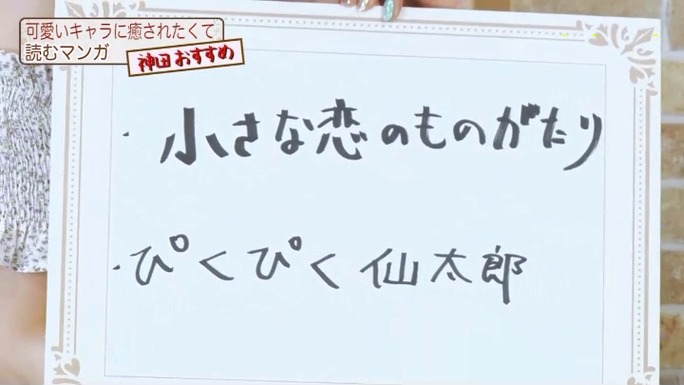 可愛いキャラに癒されたくて
読むマンガ
神田おすすめ
・小さな恋のものがたり
・ぴくぴく仙太郎